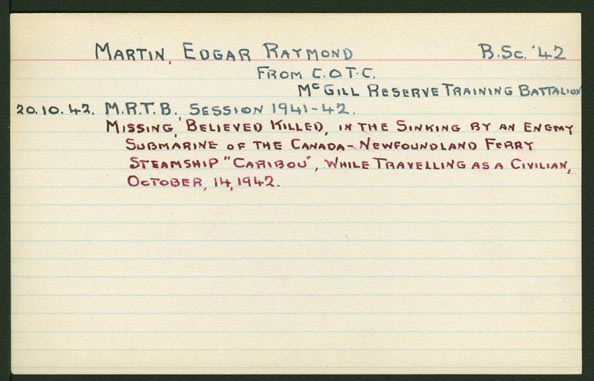 MARTIN, EDGAR RAYMOND B.Sc. '42
FROM C.O.T.C.
McGILL RESERVE TRAINING BATTALION
20.10.42. M.R.T.B., SESSION 1941-42.
MISSING, BELIEVED KILLED, IN THE SINKING BY AN ENEMY
SUBMARINE OF THE CANADA-NEWFOUNDLAND FERRY
STEAMSHIP "CARIBOU", WHILE TRAVELLING AS A CIVILIAN,
OCTOBER, 14, 1942.